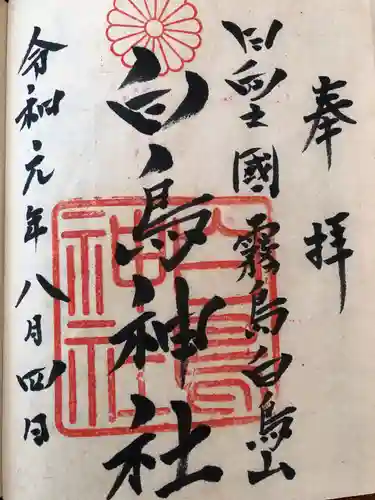 奉拝
日向国霧島白鳥山
白鳥神社
令和元年八月四日
白鳥神社